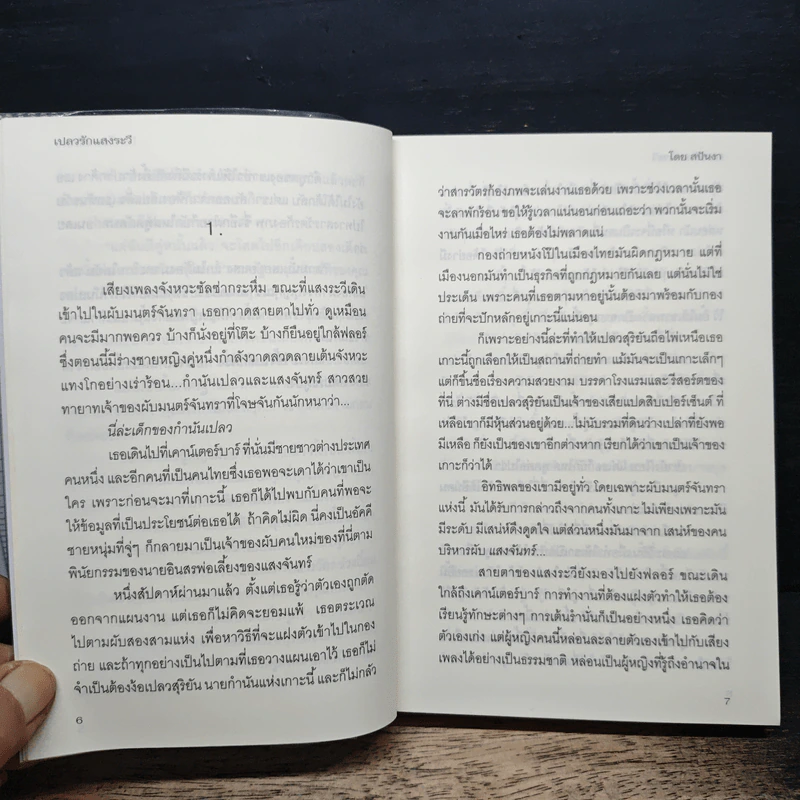 เปลวรักแสงระวี
1.
เสียงเพลงจังหวะซัลซ่ากระหึ่ม ขณะที่แสงระวีเดิน
เข้าไปในผับมนตร์จันทรา เธอกวาดสายตาไปทั่ว ดูเหมือน
คนจะมีมากพอควร บ้างก็นั่งอยู่ที่โต๊ะ บ้างก็ยืนอยู่ใกล้ฟลอร์
ซึ่งตอนนี้มีร่างชายหญิงคู่หนึ่งกำลังวาดลวดลายเต้นจังหวะ
แทงโกอย่างเร่าร้อน...กำนันเปลวและแสงจันทร์ สาวสวย
ทายาทเจ้าของผับมนตร์จันทราที่โจษจันกันนักหนาว่า...
นี่ล่ะเด็กของกำนันเปลว
เธอเดินไปที่เคาน์เตอร์บาร์ ที่นั่นมีชายชาวต่างประเทศ
คนหนึ่ง และอีกคนที่เป็นคนไทยซึ่งเธอพอจะเดาได้ว่าเขาเป็น
ใคร เพราะก่อนจะมาที่เกาะนี้ เธอก็ได้ไปพบกับคนที่พอจะ
ให้ข้อมูลที่เป็นประโยชน์ต่อเธอได้ ถ้าคิดไม่ผิด นี่คงเป็นอัคคี
ชายหนุ่มที่จู่ๆ ก็กลายมาเป็นเจ้าของผับคนใหม่ของที่นี่ตาม
พินัยกรรมของนายอินสรพ่อเลี้ยงของแสงจันทร์
หนึ่งสัปดาห์ผ่านมาแล้ว ตั้งแต่เธอรู้ว่าตัวเองถูกตัด
ออกจากแผนงาน แต่เธอก็ไม่คิดจะยอมแพ้ เธอตระเวณ
ไปตามผับสองสามแห่ง เพื่อหาวิธีที่จะแฝงตัวเข้าไปในกอง
ถ่าย และถ้าทุกอย่างเป็นไปตามที่เธอวางแผนเอาไว้ เธอก็ไม่
จำเป็นต้องง้อเปลวสุริยัน นายกำนันแห่งเกาะนี้ และก็ไม่กลัว
6
โดย สปันงา
ว่าสารวัตรก้องภพจะเล่นงานเธอด้วย เพราะช่วงเวลานั้นเธอ
จะลาพักร้อน ขอให้รู้เวลาแน่นอนก่อนเถอะว่า พวกนั้นจะเริ่ม
งานกันเมื่อไหร่ เธอต้องไม่พลาดแน่
กองถ่ายหนังโป๊ในเมืองไทยมันผิดกฎหมาย แต่ที่
เมืองนอกมันทำเป็นธุรกิจที่ถูกกฎหมายกันเลย แต่นั่นไม่ใช่
ประเด็น เพราะคนที่เธอตามหาอยู่นั้นต้องมาพร้อมกับกอง
ถ่ายที่จะปักหลักอยู่เกาะนี้แน่นอน
ก็เพราะอย่างนี้ล่ะที่ทำให้เปลวสุริยันถือไพ่เหนือเธอ
เกาะนี้ถูกเลือกให้เป็นสถานที่ถ่ายทำ แม้มันจะเป็นเกาะเล็กๆ
แต่ก็ขึ้นชื่อเรื่องความสวยงาม บรรดาโรงแรมและรีสอร์ตของ
ที่นี่ ต่างมีชื่อเปลวสุริยันเป็นเจ้าของเสียแปดสิบเปอร์เซ็นต์ ที่
เหลือเขาก็มีหุ้นส่วนอยู่ด้วย...ไม่นับรวมที่ดินว่างเปล่าที่ยังพอ
มีเหลือ ก็ยังเป็นของเขาอีกต่างหาก เรียกได้ว่าเขาเป็นเจ้าของ
เกาะก็ว่าได้
อิทธิพลของเขามีอยู่ทั่ว โดยเฉพาะผับมนตร์จันทรา
แห่งนี้ มันได้รับการกล่าวถึงจากคนทั้งเกาะ ไม่เพียงเพราะมัน
มีระดับ มีเสน่ห์ดึงดูดใจ แต่ส่วนหนึ่งมันมาจาก เสน่ห์ของคน
บริหารผับ แสงจันทร์...
สายตาของแสงระวียังมองไปยังฟลอร์ ขณะเดิน
ใกล้ถึงเคาน์เตอร์บาร์ การทำงานที่ต้องแฝงตัวทำให้เธอต้อง
เรียนรู้ทักษะต่างๆ การเต้นรำนั่นก็เป็นอย่างหนึ่ง เธอคิดว่า
ตัวเองเก่ง แต่ผู้หญิงคนนี้หล่อนละลายตัวเองเข้าไปกับเสียง
เพลงได้อย่างเป็นธรรมชาติ หล่อนเป็นผู้หญิงที่รู้ถึงอำนาจใน
7